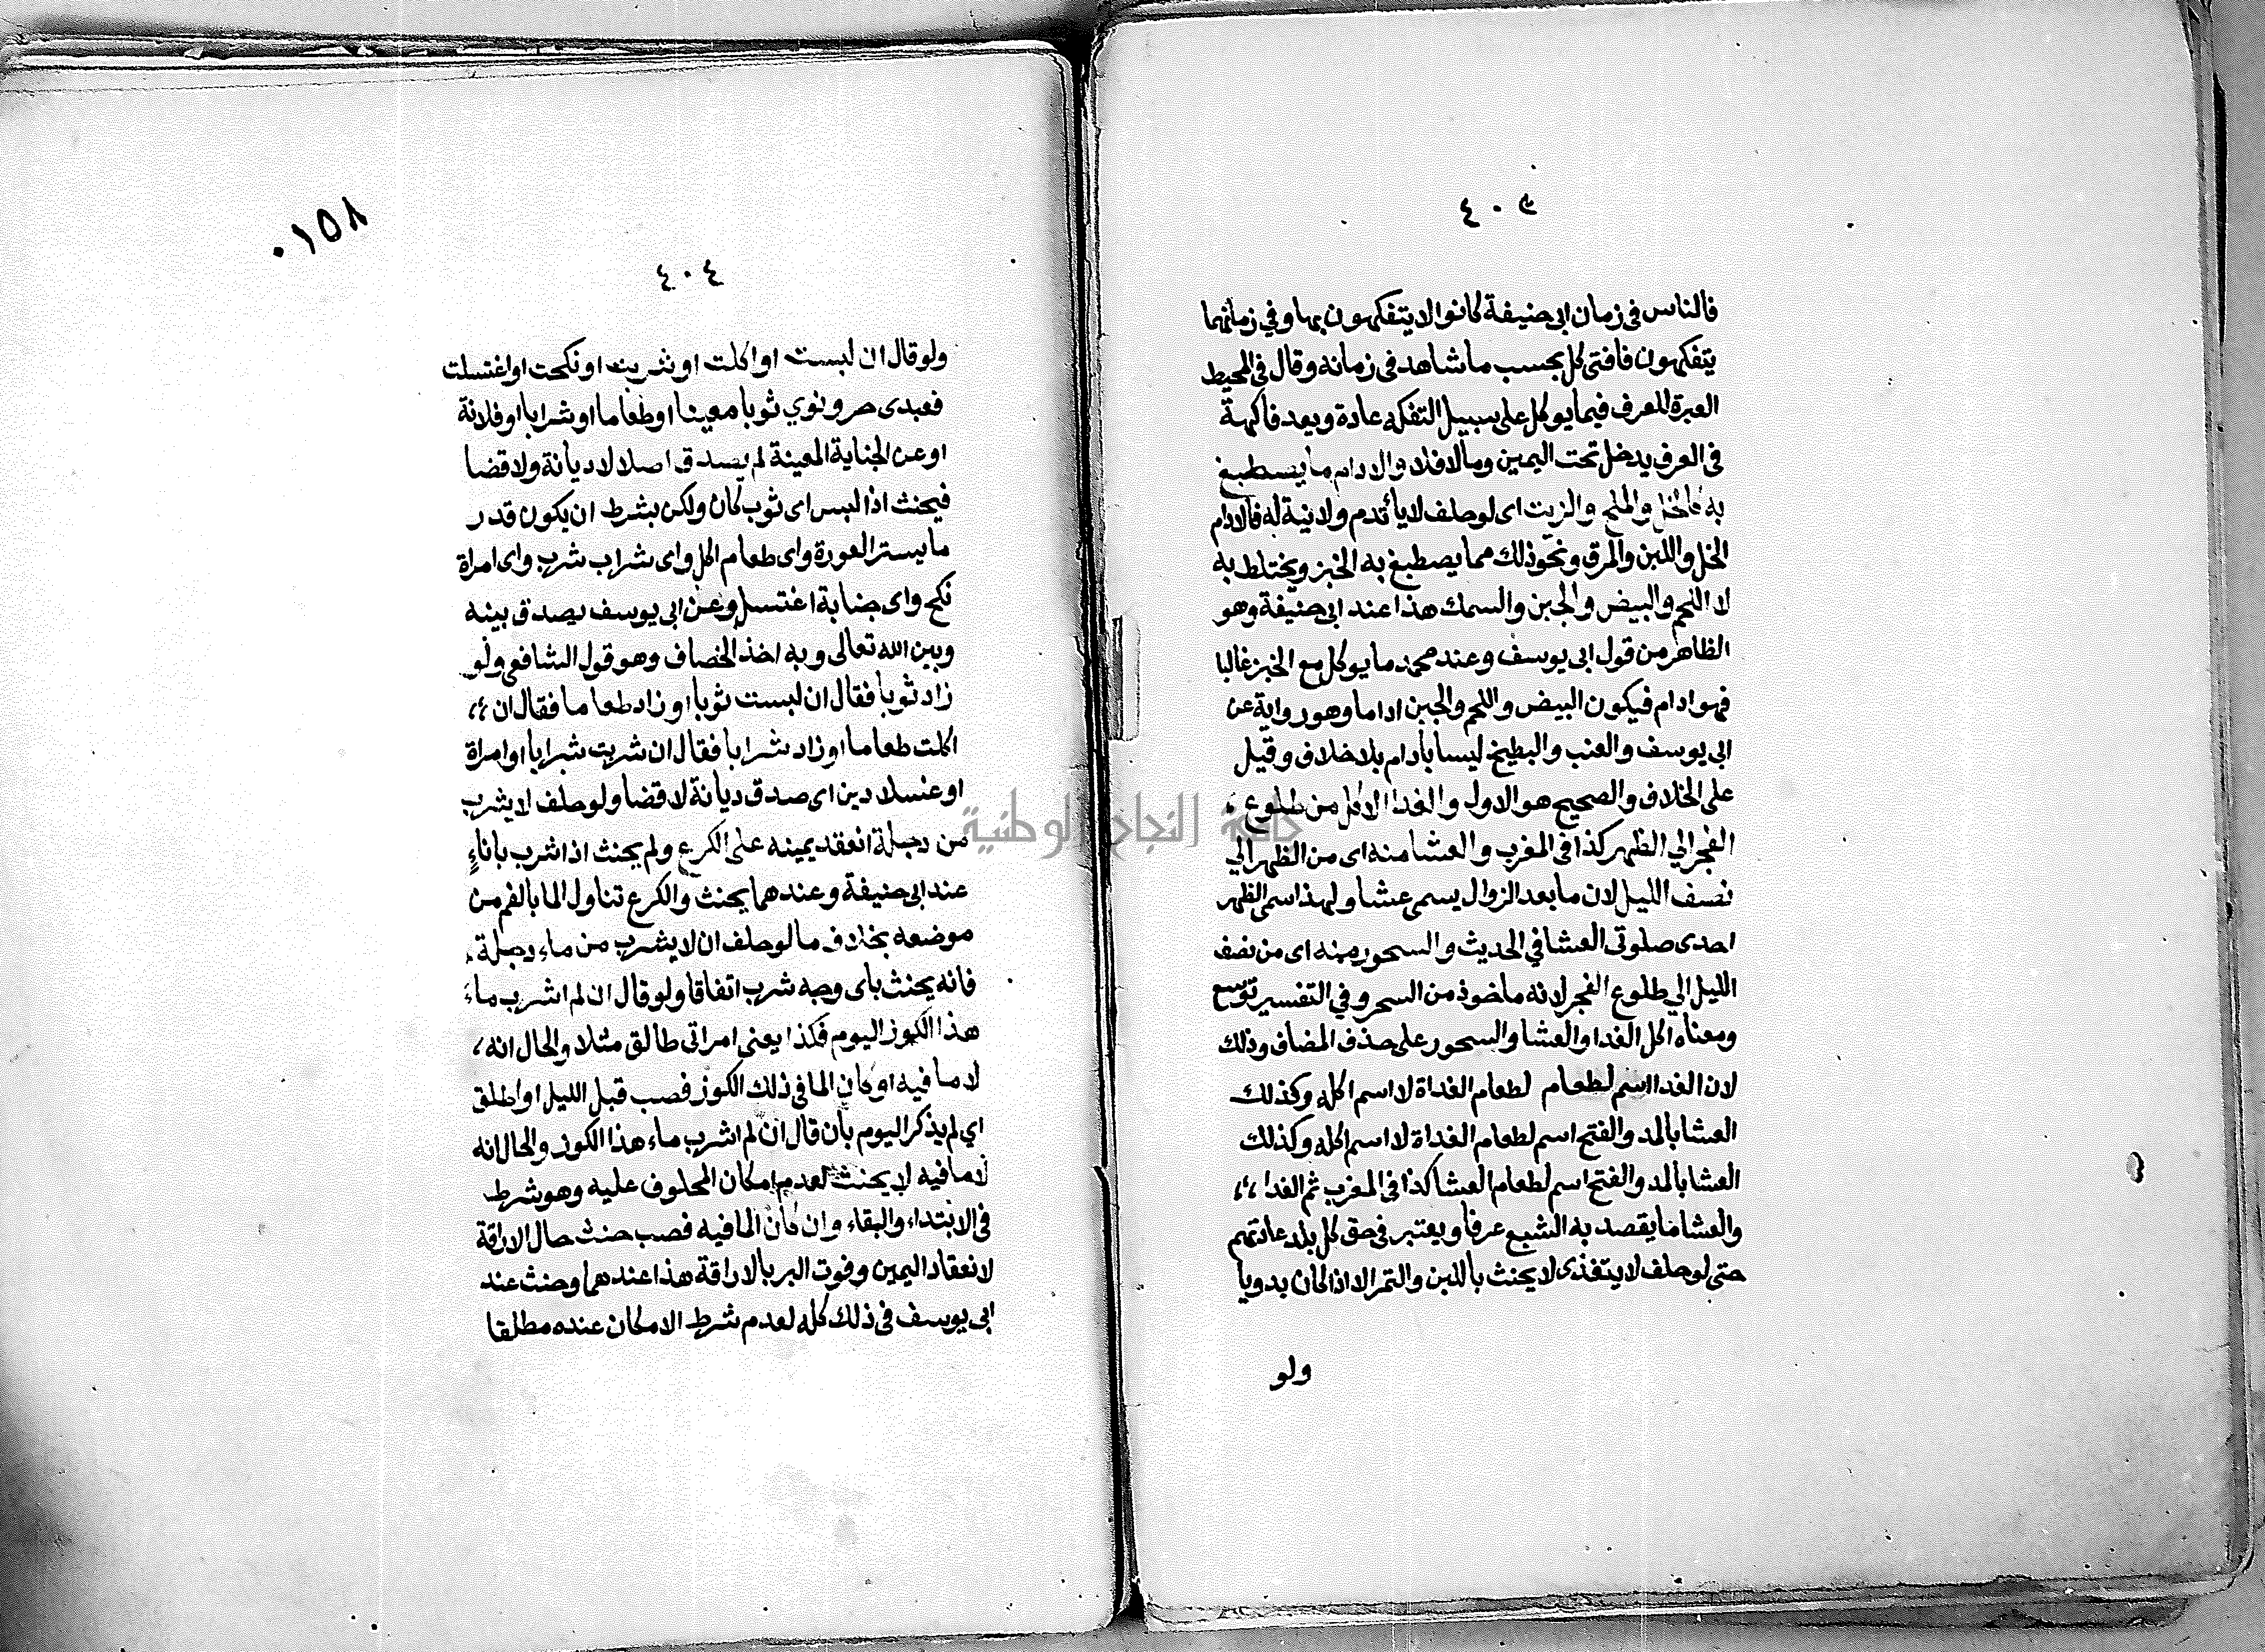 ٤٠٣
فالناس في زمان ابي حنيفة كانوا لا يتفكهون بها وفي زمانهما
يتفكهون فافتى كل بحسب ما شاهد في زمانه وقال في المحيط
العبرة للعرف فيما يوكل على سبيل التفكه عادة ويعد فاكهة
في العرف يدخل تحت اليمين وما لا فلا والادام ما يصطبغ
به كالخل والملح والزيت اى لو حلف لا يأتدم ولا نية له فالادام
الخل واللبن والمرق ونحو ذلك مما يصطبغ به الخبز ويختلط به
لا اللحم والبيض والجبن والسمك هذا عند ابي حنيفة وهو
الظاهر من قول ابى يوسف وعند محمد ما يوكل مع الخبز غالبا
فهو ادام فيكون البيض واللحم والجبن اداما وهو رواية عن
ابى يوسف والعنب والبطيخ ليسا بأدام بلا خلاف وقيل
على الخلاف والصحيح هو الاول والغدا الاكل من طلوع
الفجر الي الظهر كذا في المغرب والعشا منه اى من الظهر الي
نصف الليل لان ما بعد الزوال يسمى عشا ولهذا سمى الظهر
احدى صلوتى العشا في الحديث والسحور منه اى من نصف
الليل الي طلوع الفجر لانه ماخوذ من السحر وفي التفسير توسع
ومعناه اكل الغدا والعشا والسحور على حذف المضاف وذلك
لان الغدا اسم لطعام لطعام الغداة لا اسم اكله وكذلك
العشا بالمد والفتح اسم لطعام الغداة لا اسم اكله وكذلك
العشا بالمد والفتح اسم لطعام العشا كذا في المغرب ثم الغدا
والعشا ما يقصد به الشبع عرفا ويعتبر في حق كل بلد عادتهم
حتى لو حلف لا يتغذى لا يحنث باللبن والتمر الا اذا كان بدويا
ولو
٠١٥٨
٤٠٤
ولو قال ان لبست او اكلت او شربت او نكحت او اغتسلت
فعبدى حر ونوي ثوبا معينا او طعاما او شرابا او فلانة
او عن الجناية المعينة لم يصدق اصلا لا ديانة ولا قضا
فيحنث اذا لبس اى ثوب كان ولكن بشرط ان يكون قدر
ما يستر العورة واى طعام اكل واى شراب شرب واى امراة
نكح واى جنابة اغتسل وعن ابى يوسف يصدق بينه
وبين الله تعالى وبه اخذ الخصاف وهو قول الشافعي ولو
زاد ثوبا فقال ان لبست ثوبا او زاد طعاما فقال ان
اكلت طعاما او زاد شرابا فقال ان شربت شرابا او امراة
او غسلا دين اى صدق ديانة لا قضا ولو حلف لا يشرب
من دجلة انعقد يمينه على الكرع ولم يحنث اذا شرب باناءٍ
عند ابى حنيفة وعندهما يحنث والكرع تناول الما بالفم من
موضعه بخلاف ما لو حلف ان لا يشرب من ماء دجلة
فانه يحنث باى وجه شرب اتفاقا ولو قال ان لم اشرب ماء
هذا الكوز اليوم فكذا يعنى امراتى طالق مثلا والحال انه
لا ما فيه او كان الما في ذلك الكوز فصب قبل الليل او اطلق
اي لم يذكر اليوم بأن قال ان لم اشرب ماء هذا الكوز والحال انه
لا ما فيه لا يحنث لعدم امكان المحلوف عليه وهو شرط
في الابتداء والبقاء وان كان الما فيه فصب حنث حال الاراقة
لانعقاد اليمين وفوت البر بالاراقة هذا عندهما وحنث عند
ابى يوسف في ذلك كله لعدم شرط الامكان عنده مطلقا
جامعة النجاح الوطنية